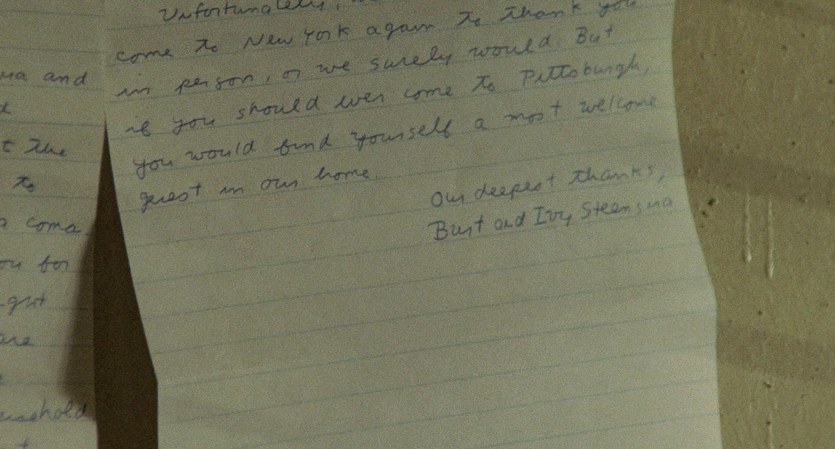 ma and
t the
to
a coma.
ou for
get
are
usehold
Unfortunately,
come to New York again to thank you
in person, or we surely would. But
if you should ever come to Pittsburgh,
you would find yourself a most welcome
guest in our home.
Our deepest thanks,
Burt and Ivy Steensma